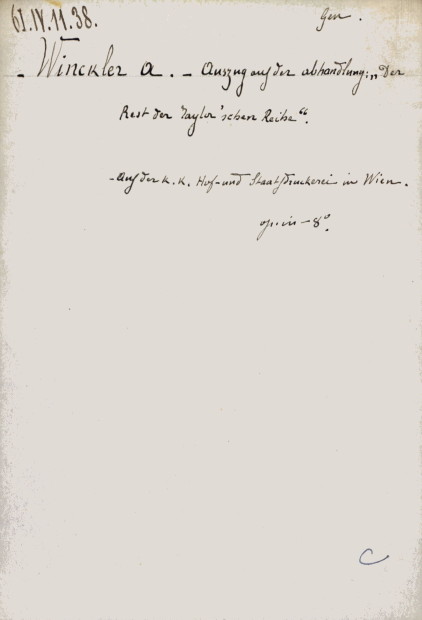 61.IV.11.38.
Gen.
- Winckler A. - Auszug auf der abhandlung: „Der
Rest der Taylor'schen Reihe“.
- Auf der K. K. Hof- und Staatsdruckerei in Wien.
op. in - 8º.
C